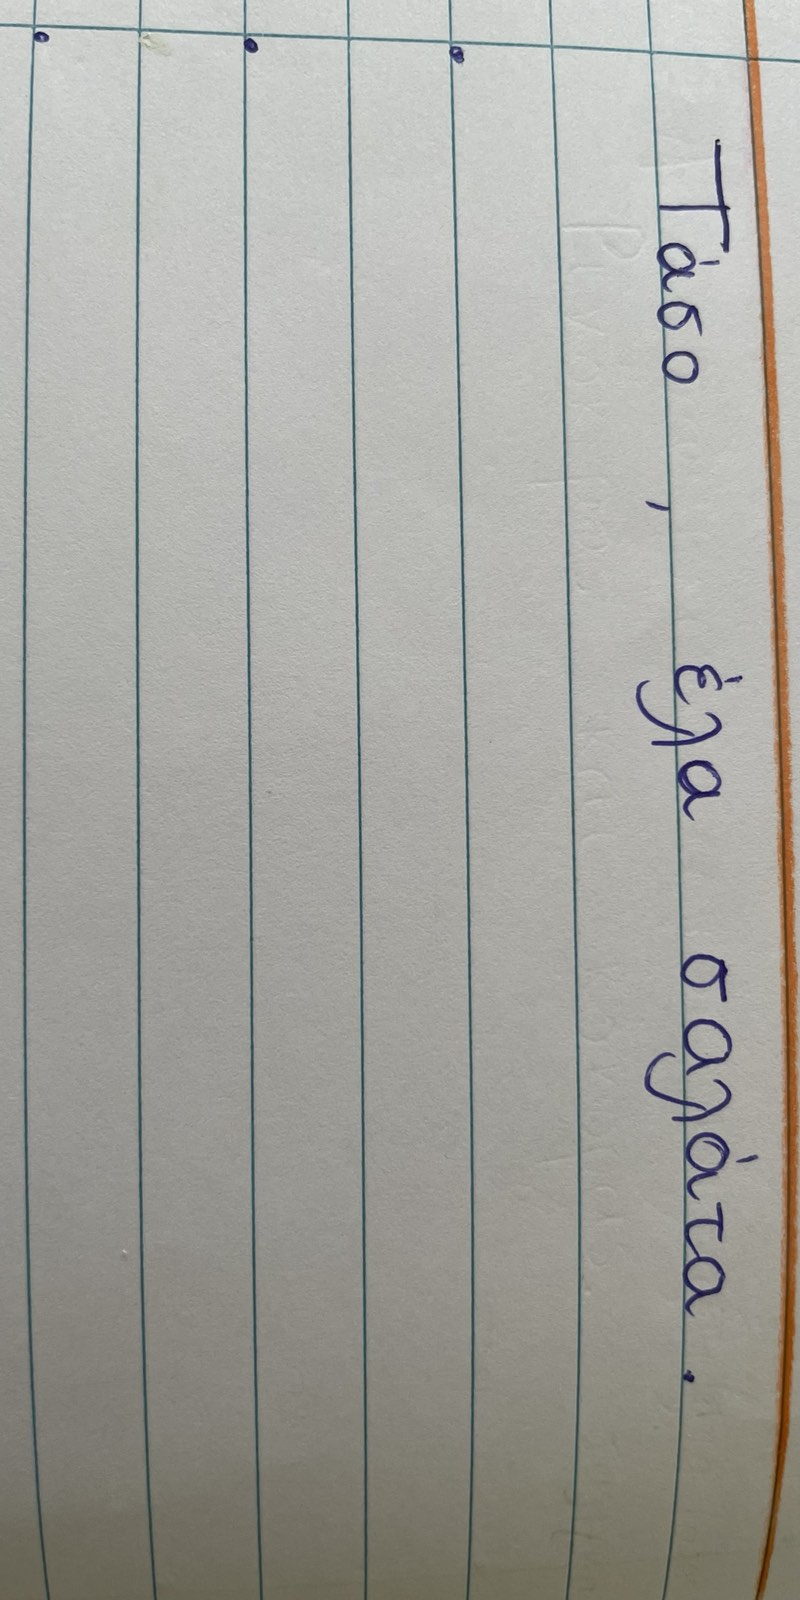 Τάσο , έλα σαλάτα .